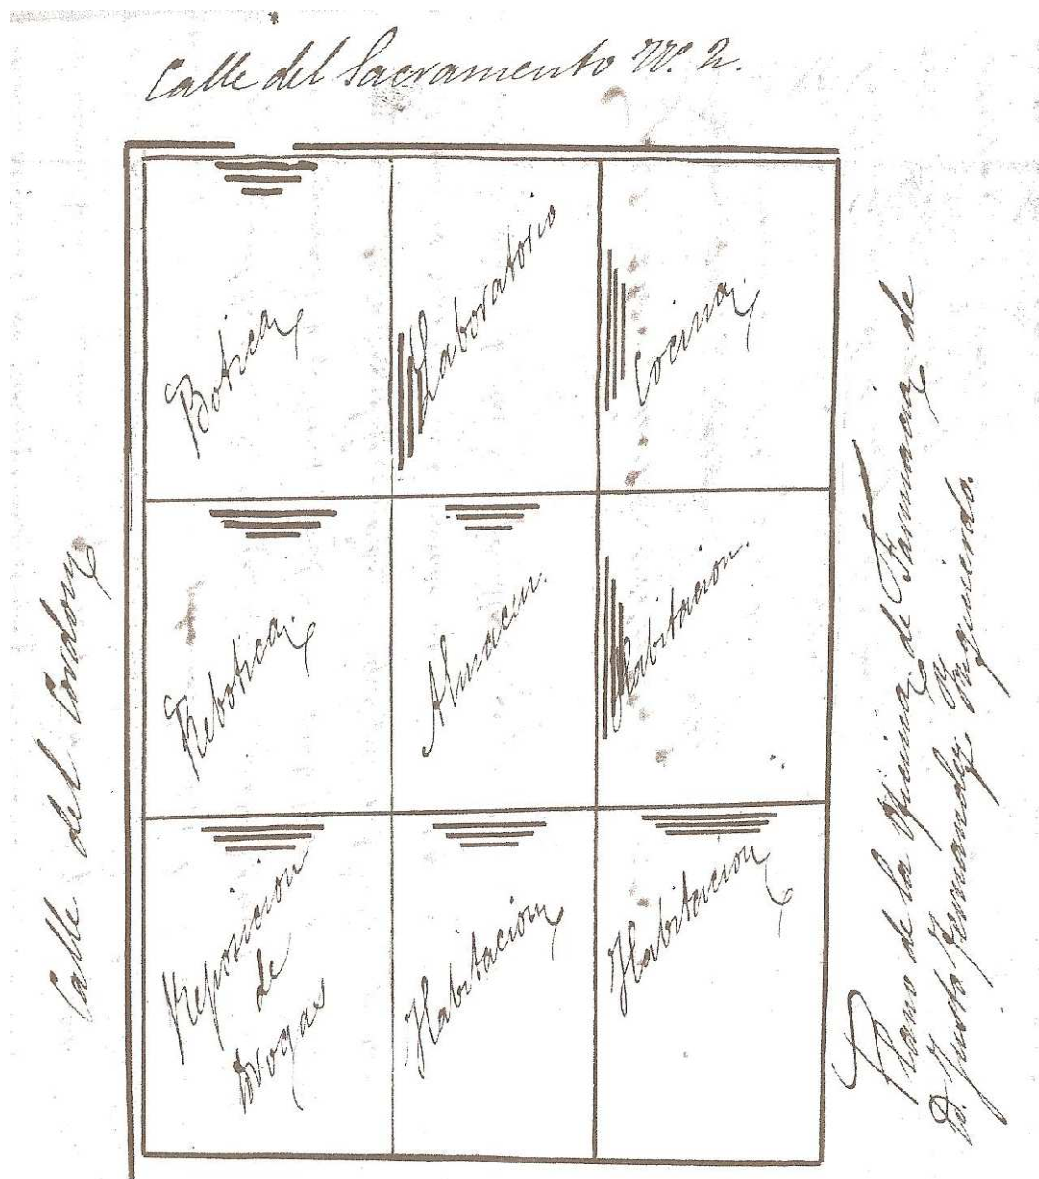 Calle del Sacramento Nº 2.
Botica
Laboratorio
Cocina
Rebotica
Almacen.
Habitacion.
Reposicion
de
Drogas
Habitacion
Habitacion
Calle del Cordon
Plano de la Oficina de Farmacia de
D. Justo Fernandez y Izquierdo.